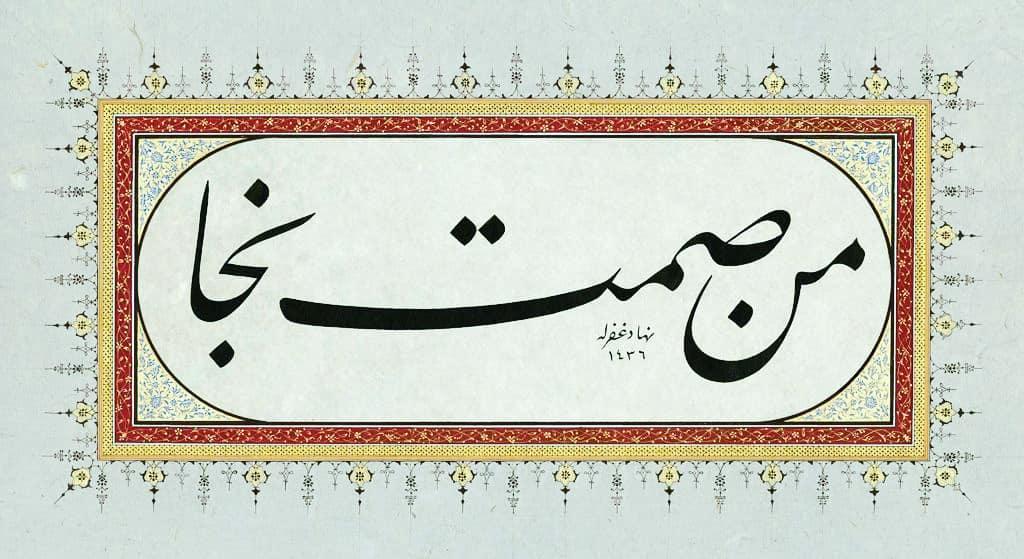 من صمت نجا
نهاد غفرله
١٤٣٦